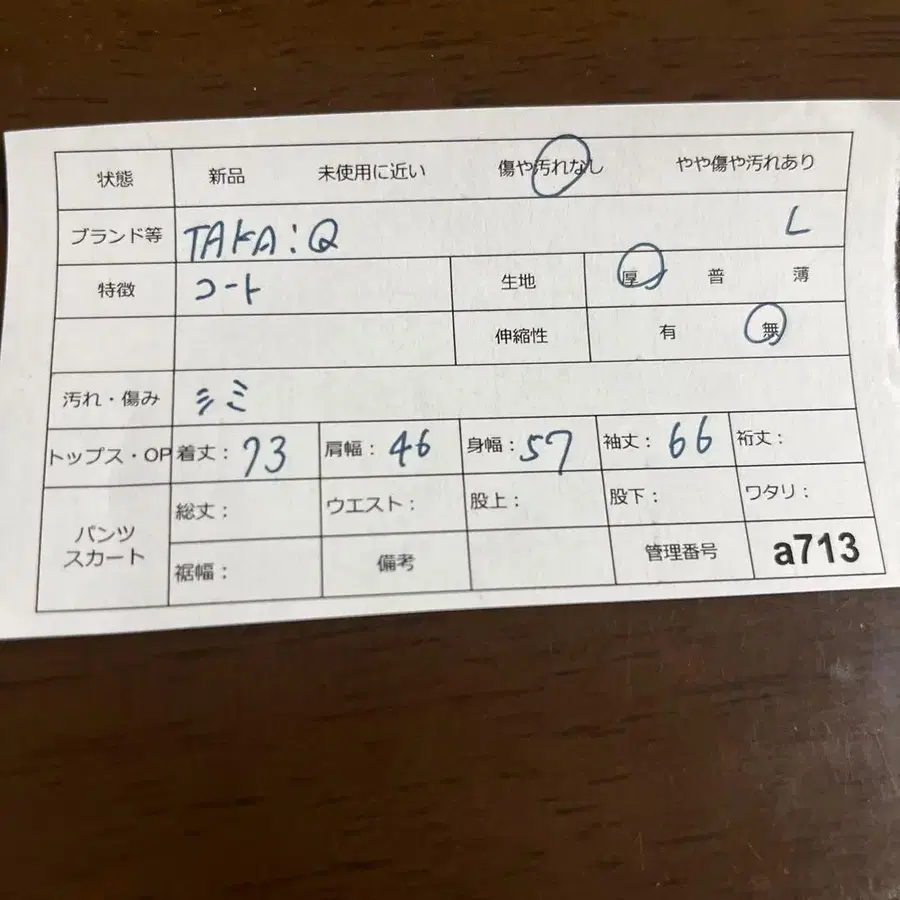 状態 新品 未使用に近い 傷や汚れなし やや傷や汚れあり
ブランド等 TAKA:Q L
特徴 コート 生地 厚 普 薄
伸縮性 有 無
汚れ・傷み シミ
トップス・OP 着丈: 73 肩幅: 46 身幅: 57 袖丈: 66 裄丈:
パンツ スカート 総丈: ウエスト: 股上: 股下: ワタリ:
裾幅: 備考 管理番号 a713